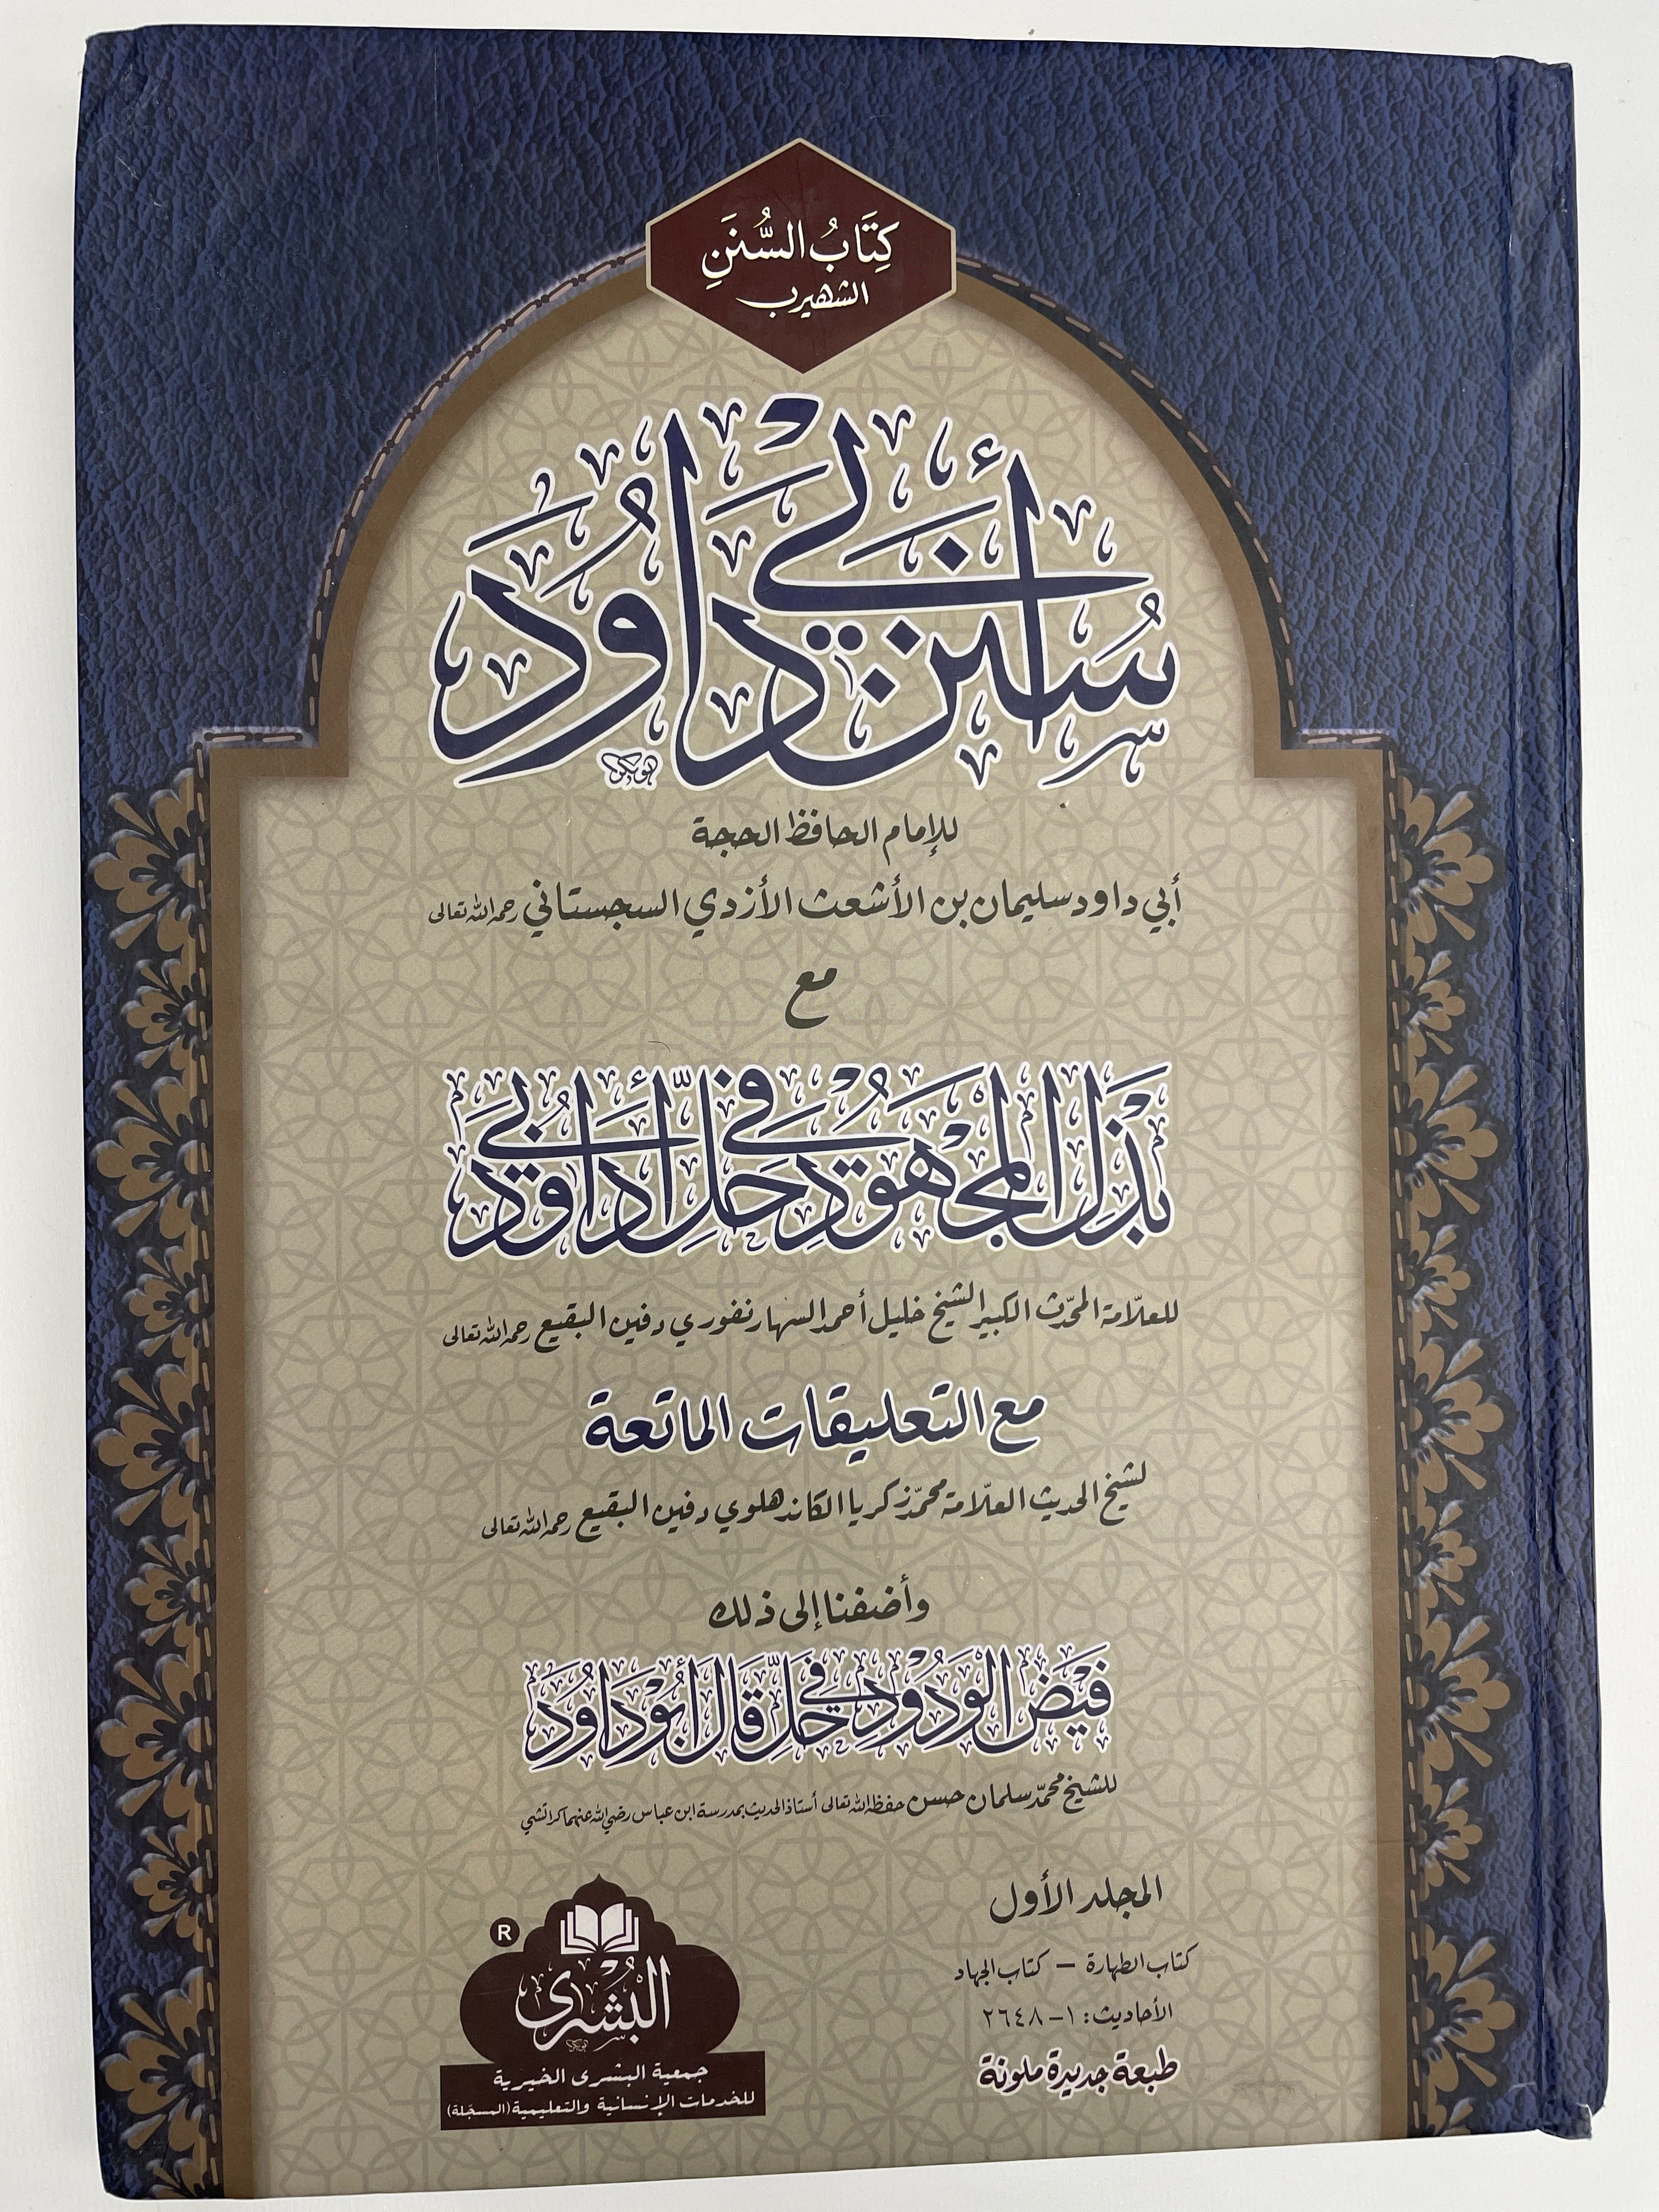 كِتَابُ السُّنَنِ
الشهير ب
سُنَن أَبِيْ دَاوُدَ
للإمام الحافظ الحجة
أبي داود سليمان بن الأشعث الأزدي السجستاني رحمه الله تعالى
مع
بَذْلُ الْمَجْهُوْدِ فِيْ حَلِّ أَبِيْ دَاوُدَ
للعلّامة المحدّث الكبير الشيخ خليل أحمد السهارنفوري دفين البقيع رحمه الله تعالى
مع التعليقات الماتعة
لشيخ الحديث العلّامة محمّد زكريا الكاندهلوي دفين البقيع رحمه الله تعالى
وأضفنا إلى ذلك
فَيْضُ الْوَدُوْدِ فِيْ حَلِّ قَالَ أَبُوْ دَاوُدَ
للشيخ محمّد سلمان حسن حفظه الله تعالى أستاذ الحديث بمدرسة ابن عباس رضي الله عنهما كراتشي
المجلد الأول
كتاب الطهارة – كتاب الجهاد
الأحاديث: ١–٢٦٤٨
طبعة جديدة ملونة
R
البُشْرٰى
جمعية البشرى الخيرية
للخدمات الإنسانية والتعليمية (المسجّلة)